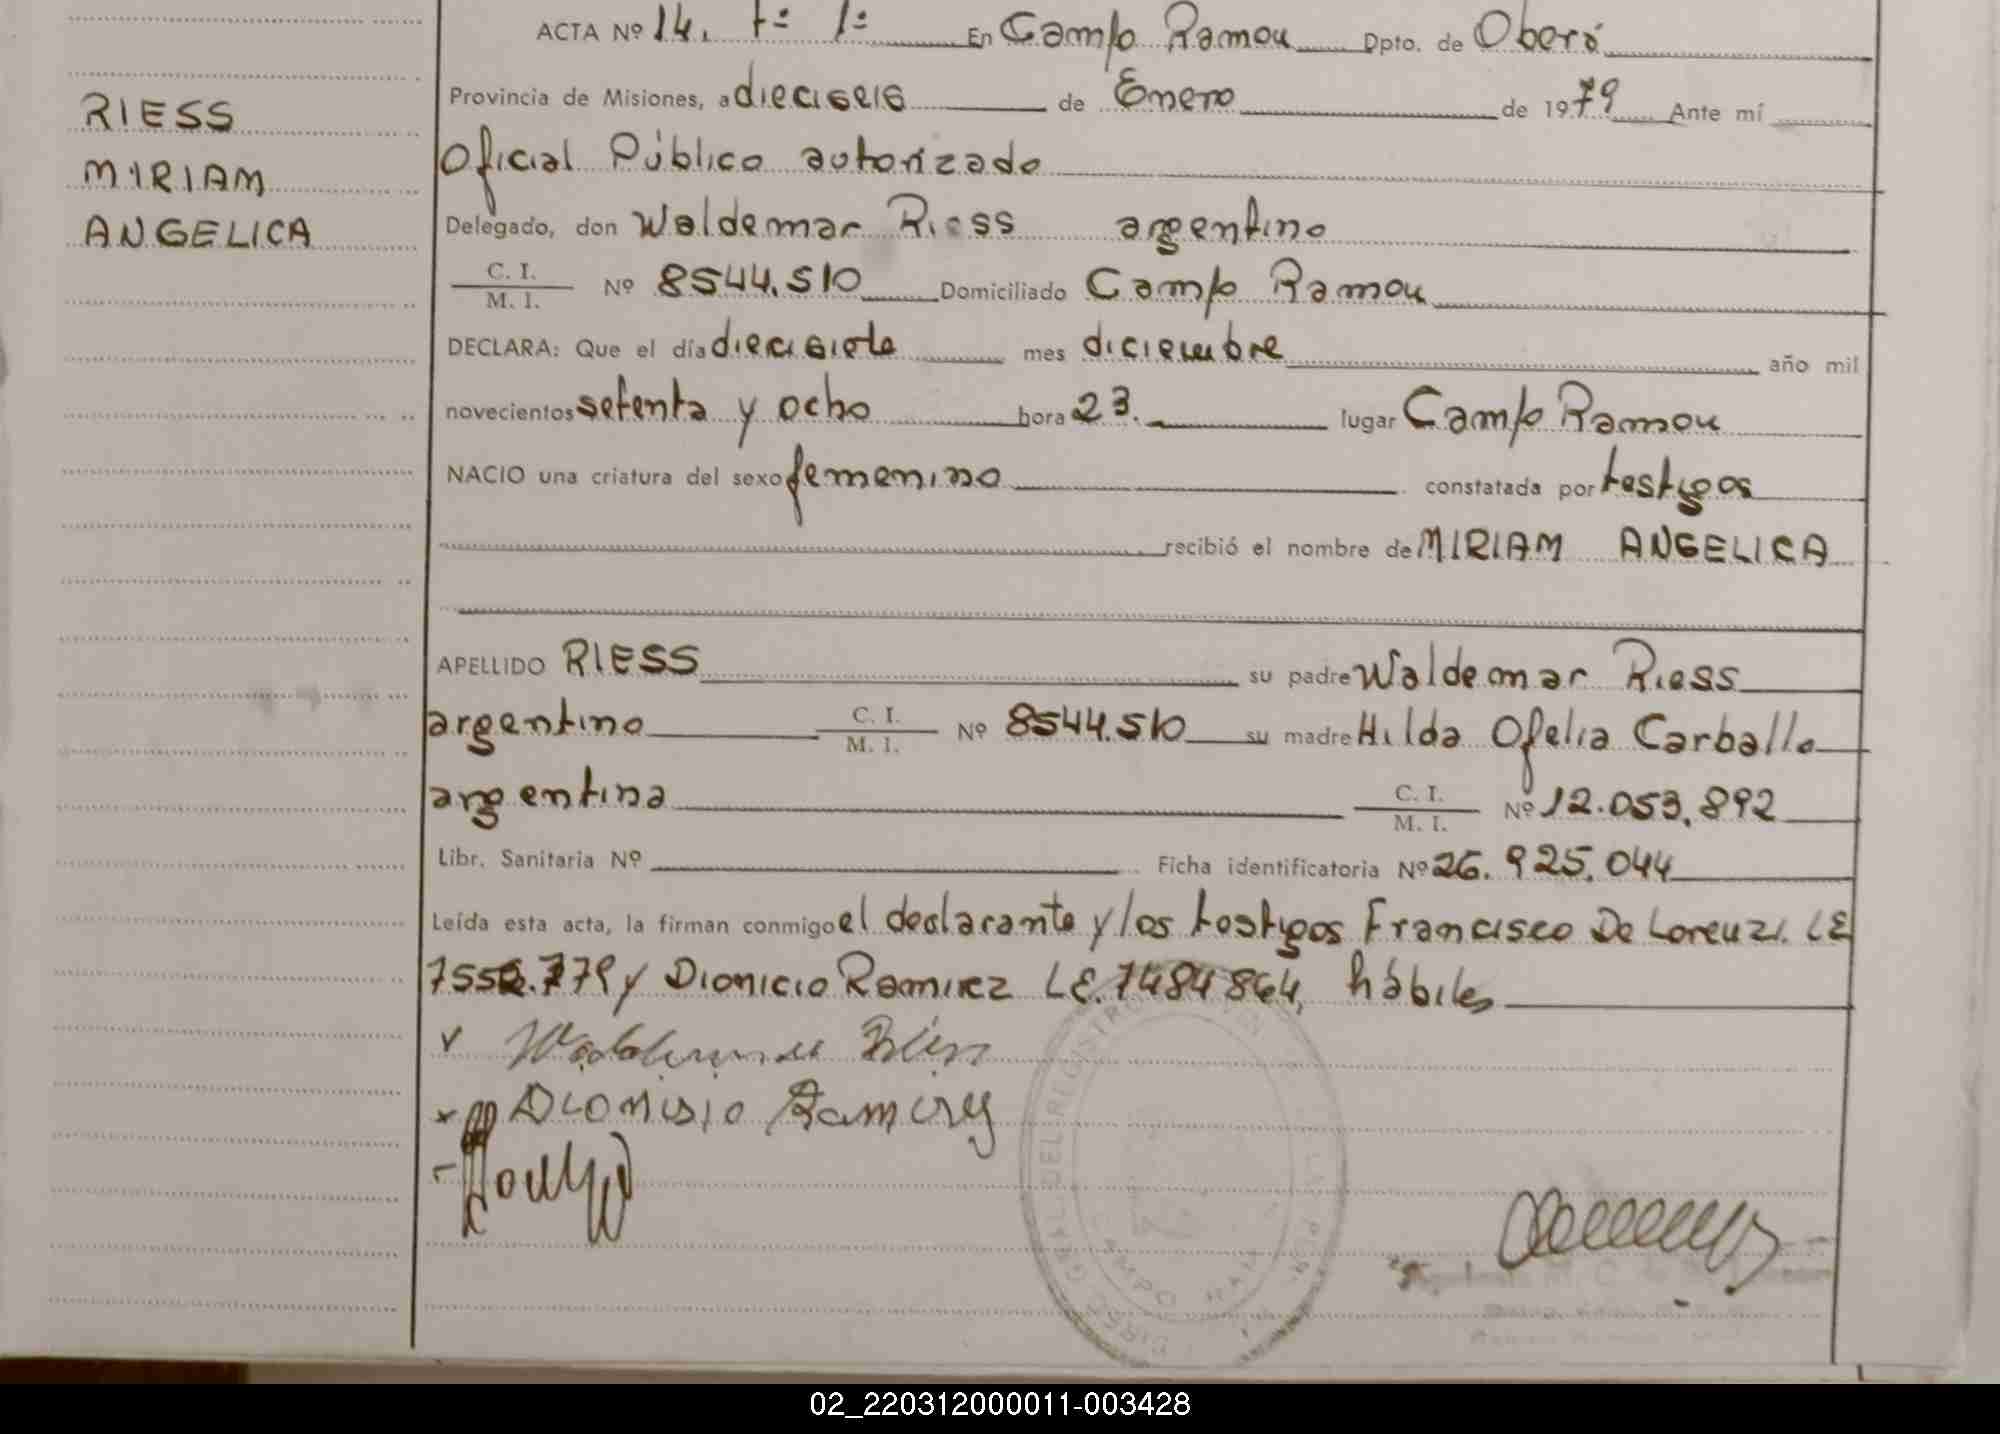 ACTA Nº 14. tº 1º En Campo Ramou Dpto. de Oberá
Provincia de Misiones, a dieciseis de Enero de 1979 Ante mí
RIESS
MIRIAM
ANGELICA
Oficial Público autorizado
Delegado, don Waldemar Riess argentino
C. I. / M. I. Nº 8544.510 Domiciliado Campo Ramou
DECLARA: Que el día diecisiete mes diciembre año mil
novecientos setenta y ocho hora 23. lugar Campo Ramou
NACIO una criatura del sexo femenino constatada por testigos
recibió el nombre de MIRIAM ANGELICA
APELLIDO RIESS su padre Waldemar Riess
argentino C. I. / M. I. Nº 8544.510 su madre Hilda Ofelia Carballo
argentina C. I. / M. I. Nº 12.053.892
Libr. Sanitaria Nº Ficha identificatoria Nº 26.925.044
Leída esta acta, la firman conmigo el declarante y los testigos Francisco De Lorenzi. LE
y Dionicio Ramirez LE. 7484864, hábiles
Dionisio Ramirez
DIREC. GRAL. DEL REGISTRO
CAMPO RAM
02_220312000011-003428